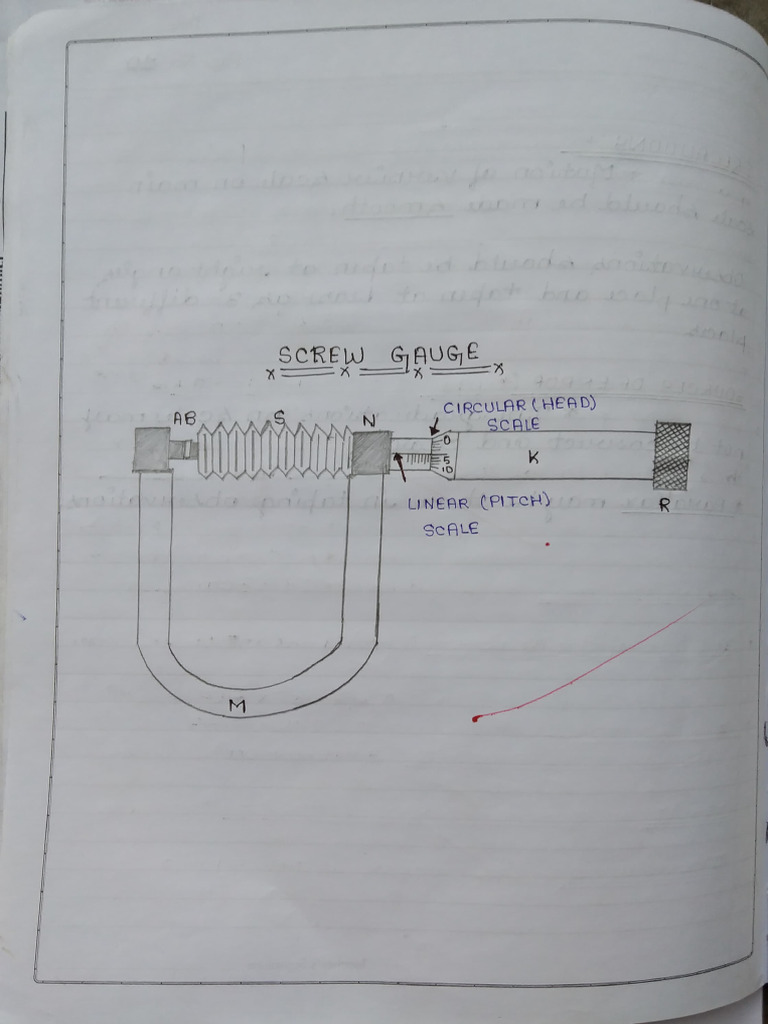 SCREW GAUGE
CIRCULAR (HEAD)
SCALE
AB
S
N
0
5
10
K
R
LINEAR (PITCH)
SCALE
M